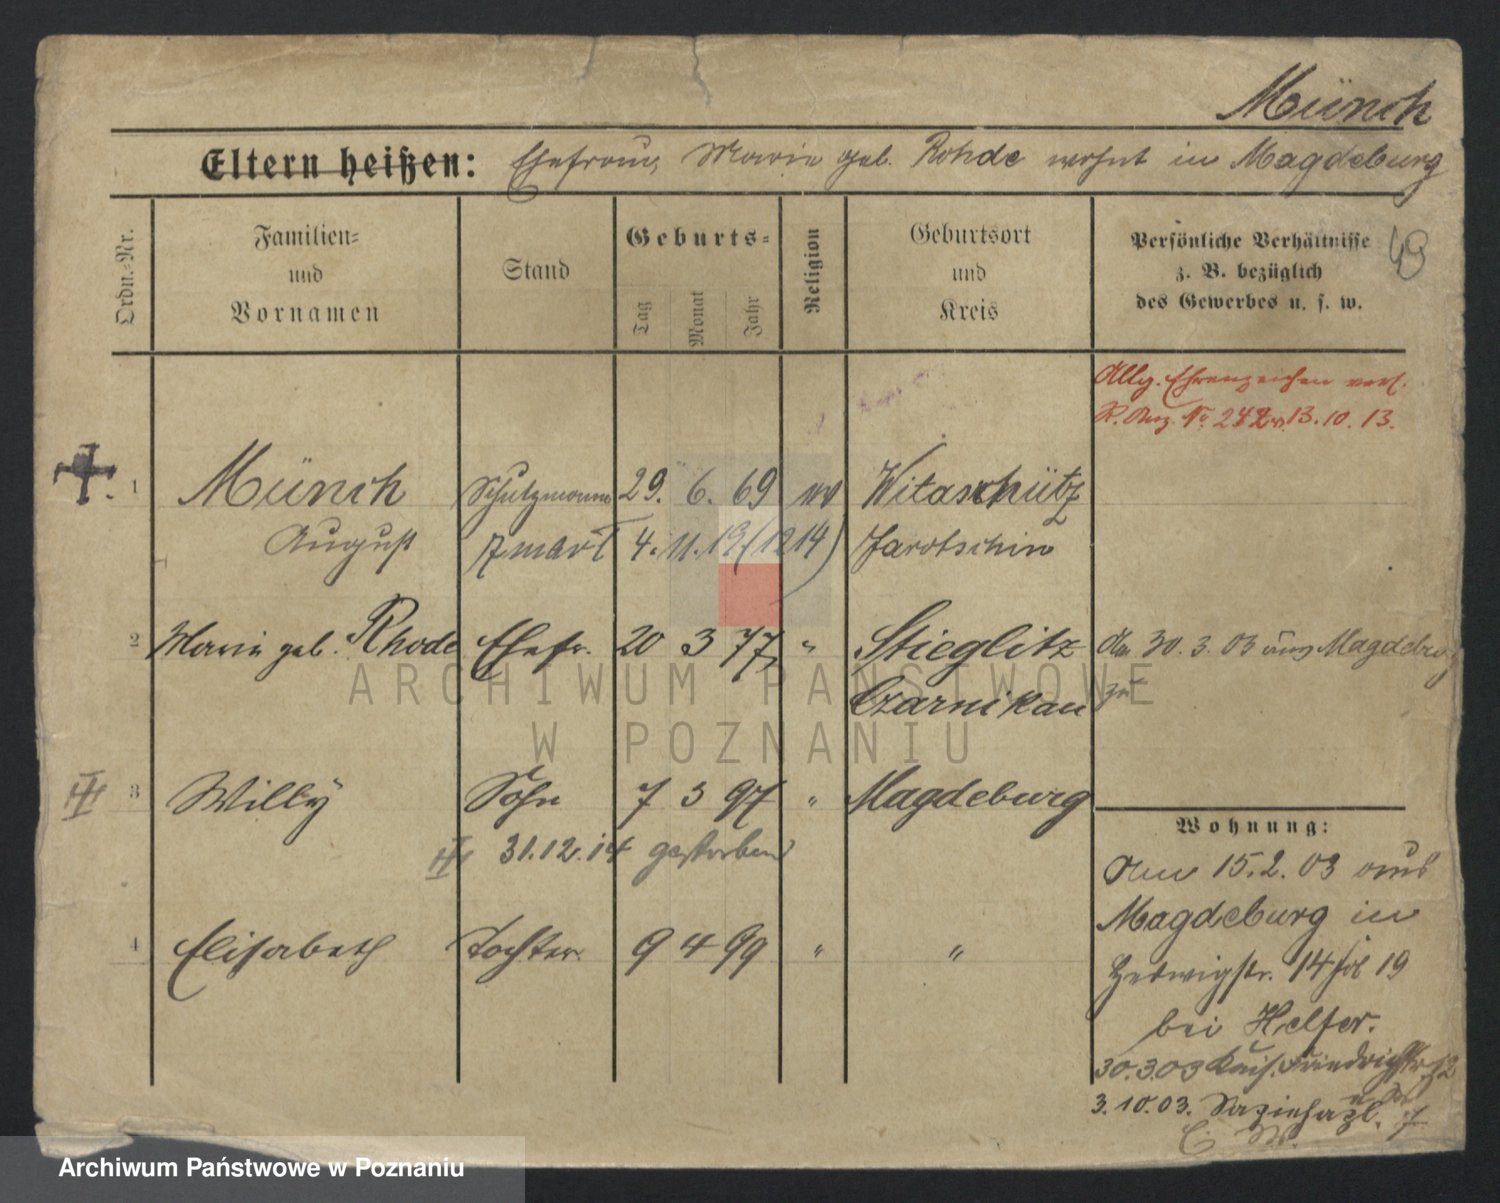 Münch
Eltern heißen: Ehefrau, Marie geb. Rohde wohnt in Magdeburg
49
Ordn.-Nr.
Familien-
und
Vornamen
Stand
Geburts-
Tag
Monat
Jahr
Religion
Geburtsort
und
Kreis
Persönliche Verhältnisse
z. B. bezüglich
des Gewerbes u. s. w.
Allg. Ehrenzeichen verl.
13.10.13.
1 Münch Schutzmann 29. 6. 69 ev Witaschütz
August 4. 11. 19 (1214) Jarotschin
2 Marie geb. Rhode Ehefr. 20 3 77 " Stieglitz
Czarnikau
Am 30.3.03 aus Magdeburg
zu
3 Willy Sohn 7 3 97 " Magdeburg
31.12.14 gestorben
4 Elisabeth Tochter 9 4 99 " "
Wohnung:
Am 15.2.03 aus
Magdeburg in
Hedwigstr. 14 19
bei Helfer.
30.3.03 Kais. Friedrichstr.
3.10.03. 7
ARCHIWUM PAŃSTWOWE
W POZNANIU
Archiwum Państwowe w Poznaniu